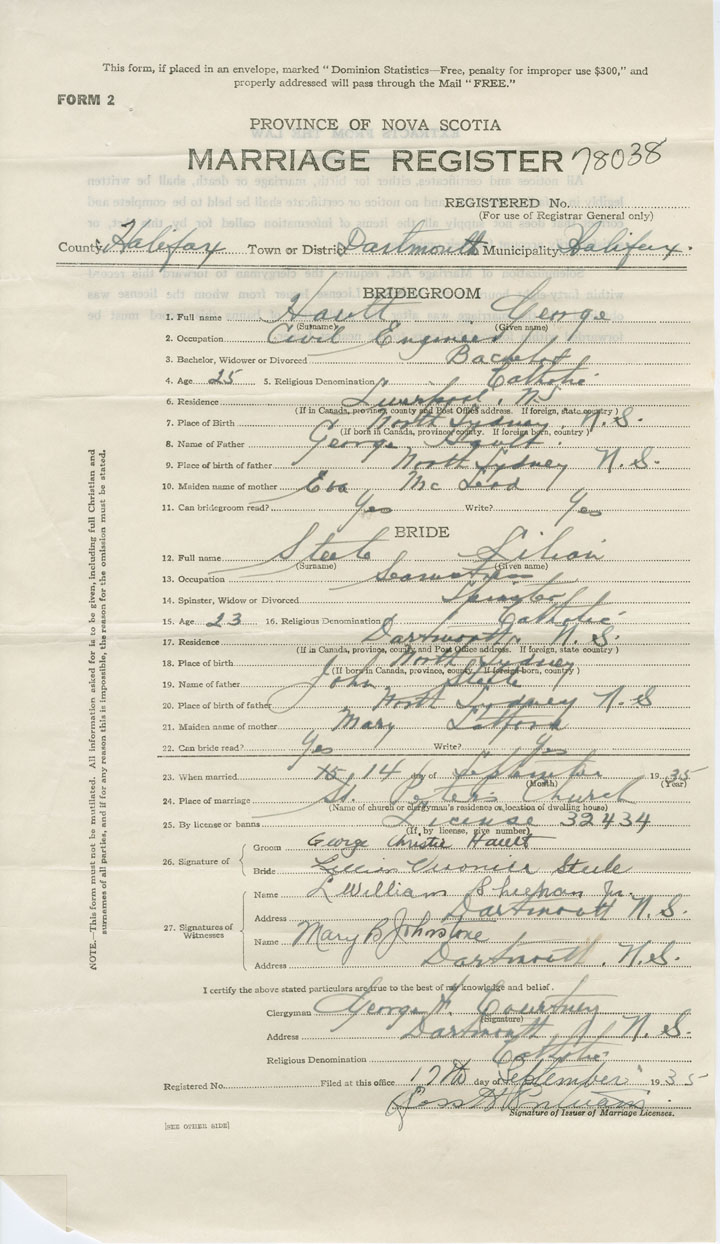 This form, if placed in an envelope, marked " Dominion Statistics—Free, penalty for improper use $300," and
properly addressed will pass through the Mail " FREE."
FORM 2
PROVINCE OF NOVA SCOTIA
MARRIAGE REGISTER 78038
REGISTERED No.
(For use of Registrar General only)
County Halifax Town or District Dartmouth Municipality Halifax
BRIDEGROOM
1. Full name Hault George
(Surname) (Given name)
2. Occupation Civil Engineer
3. Bachelor, Widower or Divorced Bachelor
4. Age 25 5. Religious Denomination Catholic
6. Residence Liverpool, NS
(If in Canada, province, county and Post Office address. If foreign, state country )
7. Place of Birth North Sydney. N.S.
(If born in Canada, province, county. If foreign born, country )
8. Name of Father George Hault
9. Place of birth of father North Sydney N.S.
10. Maiden name of mother Eva Mc Leod
11. Can bridegroom read? Yes Write? Yes
BRIDE
12. Full name Steele Lilian
(Surname) (Given name)
13. Occupation Seamstress
14. Spinster, Widow or Divorced Spinster
15. Age 23 16. Religious Denomination Catholic
17. Residence Dartmouth N.S.
(If in Canada, province, county, and Post Office address. If foreign, state country )
18. Place of birth North Sydney
(If born in Canada, province, county, If foreign-born, country )
19. Name of father John Steele
20. Place of birth of father North Sydney N.S
21. Maiden name of mother Mary
22. Can bride read? Yes Write? Yes
23. When married 15, 14 day of September 1935
(Month) (Year)
24. Place of marriage St. Peter's Church
(Name of church or clergyman's residence or location of dwelling house)
25. By license or banns License 32434
(If, by license, give number)
26. Signature of
Groom George Christie Hault
Bride Lillian Veronica Steele
27. Signatures of Witnesses
Name William Jr.
Address Dartmouth N.S.
Name Mary B Johnstone
Address Dartmouth. N.S.
I certify the above stated particulars are true to the best of my knowledge and belief.
Clergyman George F. Courtney
(Signature)
Address Dartmouth N.S.
Religious Denomination Catholic
Registered No. Filed at this office 17th day of September 1935
Signature of Issuer of Marriage Licenses.
[SEE OTHER SIDE]
NOTE.—This form must not be mutilated. All information asked for is to be given, including full Christian and
surnames of all parties, and if for any reason this is impossible, the reason for the omission must be stated.